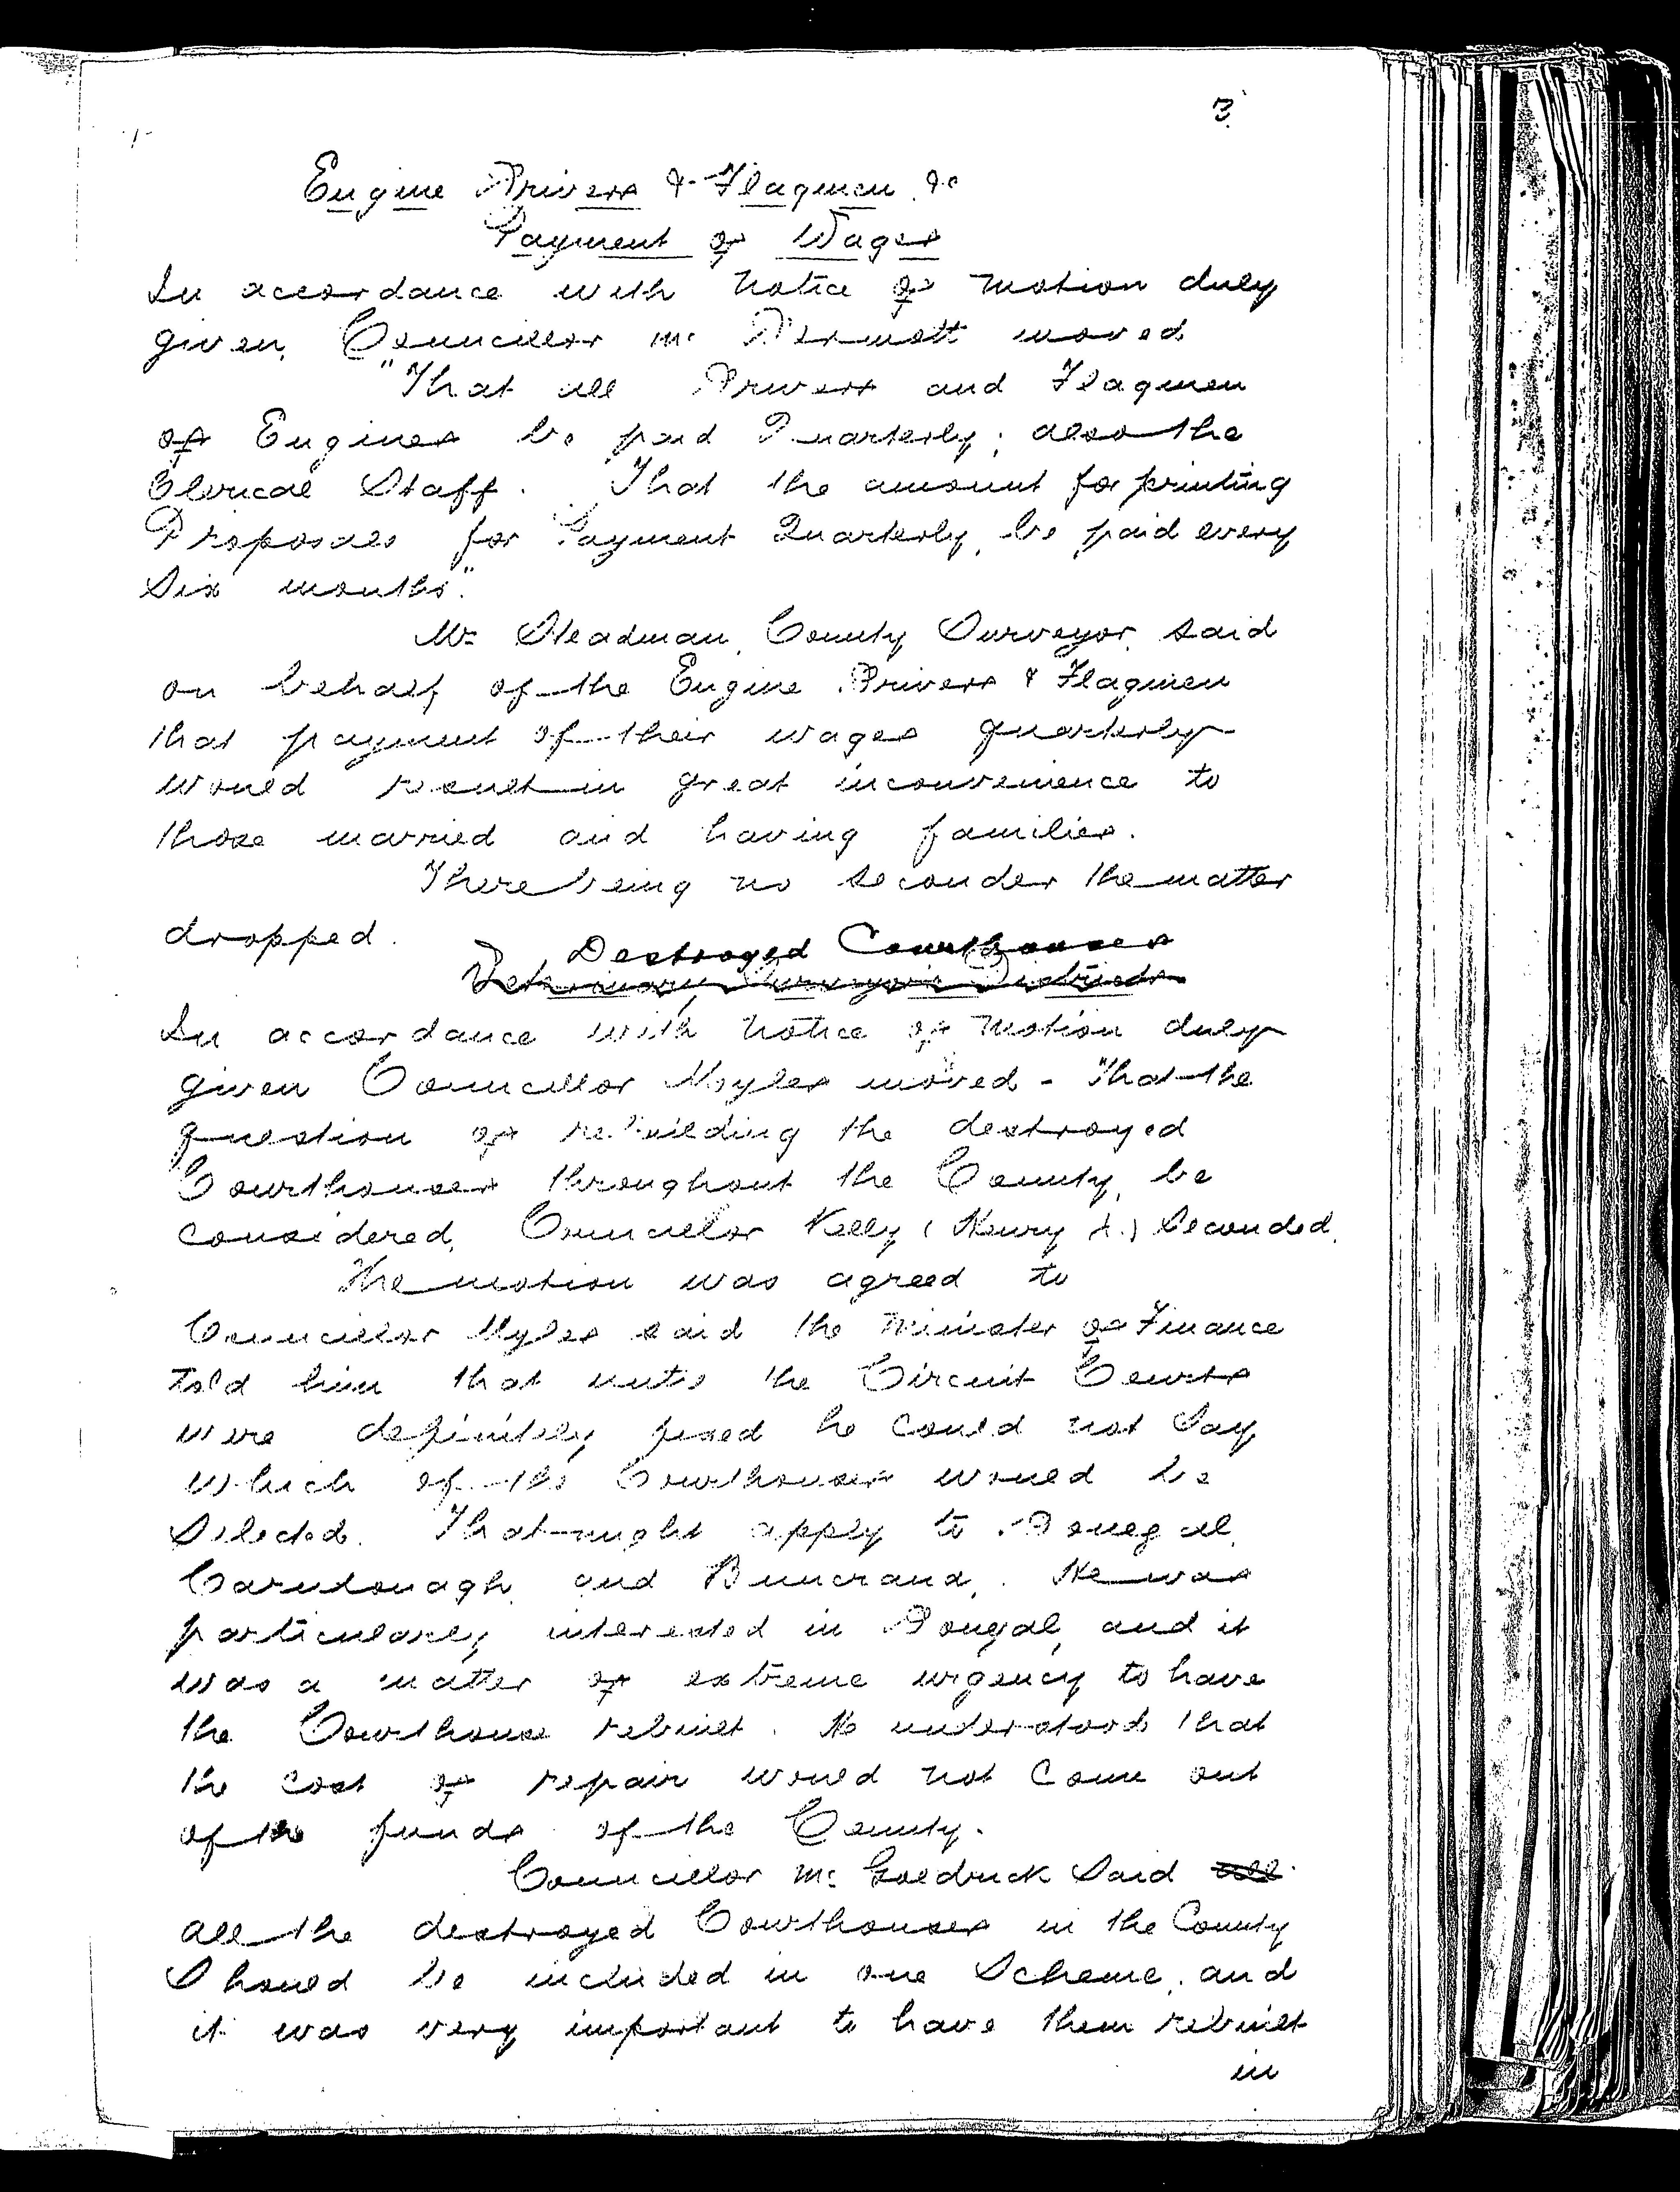 3.
Engine Drivers & Flagmen &c
Payment of Wages
In accordance with notice of motion duly
given, Councillor Mc Dermott moved
"That all Drivers and Flagmen
of Engines be paid Quarterly; also the
Clerical Staff. That the amount for printing
Proposals for Payment Quarterly, be paid every
Six months."
Mr Steadman, County Surveyor, said
on behalf of the Engine Drivers & Flagmen
that payment of their wages quarterly
would result in great inconvenience to
those married and having families.
There being no seconder the matter
dropped.
Destroyed Courthouses
In accordance with notice of motion duly
given Councillor Myles moved - "That the
question of rebuilding the destroyed
Courthouses throughout the County, be
considered, Councillor Kelly (Henry) Seconded.
The motion was agreed to
Councillor Myles said the Minister of Finance
told him that until the Circuit Courts
were definitely fixed he could not say
which of the Courthouses would be
selected. That might apply to Donegal,
Carndonagh and Buncrana. He was
particularly interested in Donegal, and it
was a matter of extreme urgency to have
the Courthouse rebuilt. He understood that
the cost of repair would not come out
of the funds of the County.
Councillor Mc Goldrick said all
all the destroyed Courthouses in the County
should be included in one Scheme, and
it was very important to have them rebuilt
in